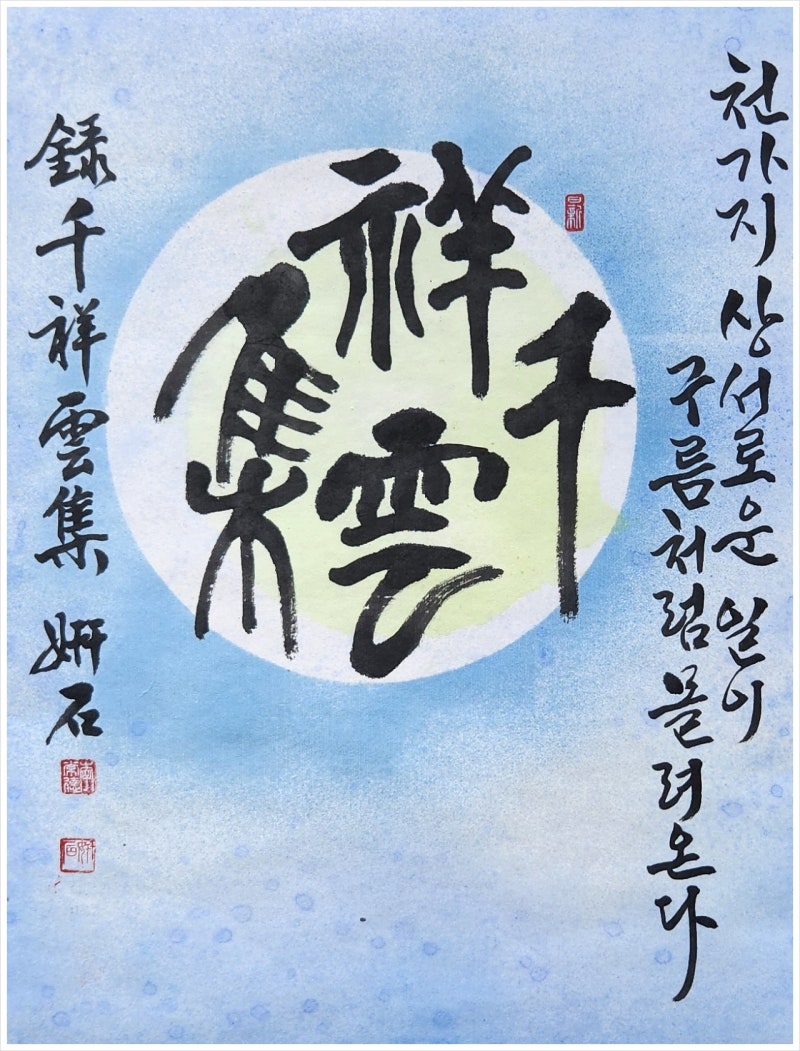 천가지 상서로운 일이
구름처럼 몰려온다
日新
千祥雲集
録千祥雲集 姸石